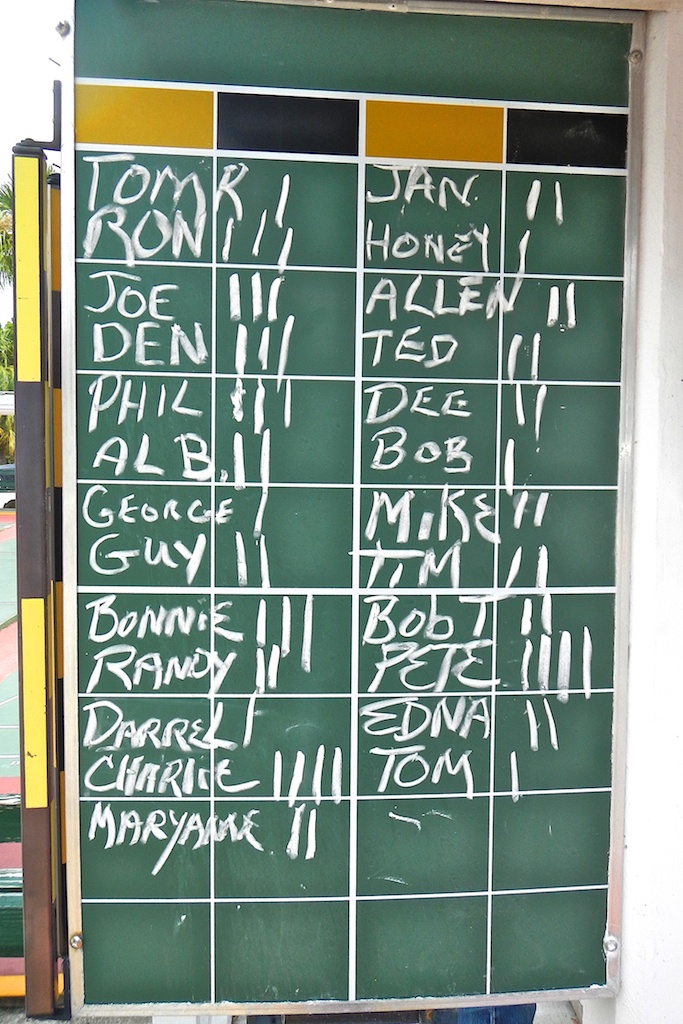 TOM R | JAN. ||
RON ||| HONEY |
JOE ||| ALLEN ||
DEN ||| TED ||
PHIL ||| DEE ||
AL B. || BOB |
GEORGE | MIKE ||
GUY || TIM ||
BONNIE ||| BOB T ||
RANDY || PETE ||||
DARREL | EDNA ||
CHARLIE |||| TOM |
MARYANNE ||